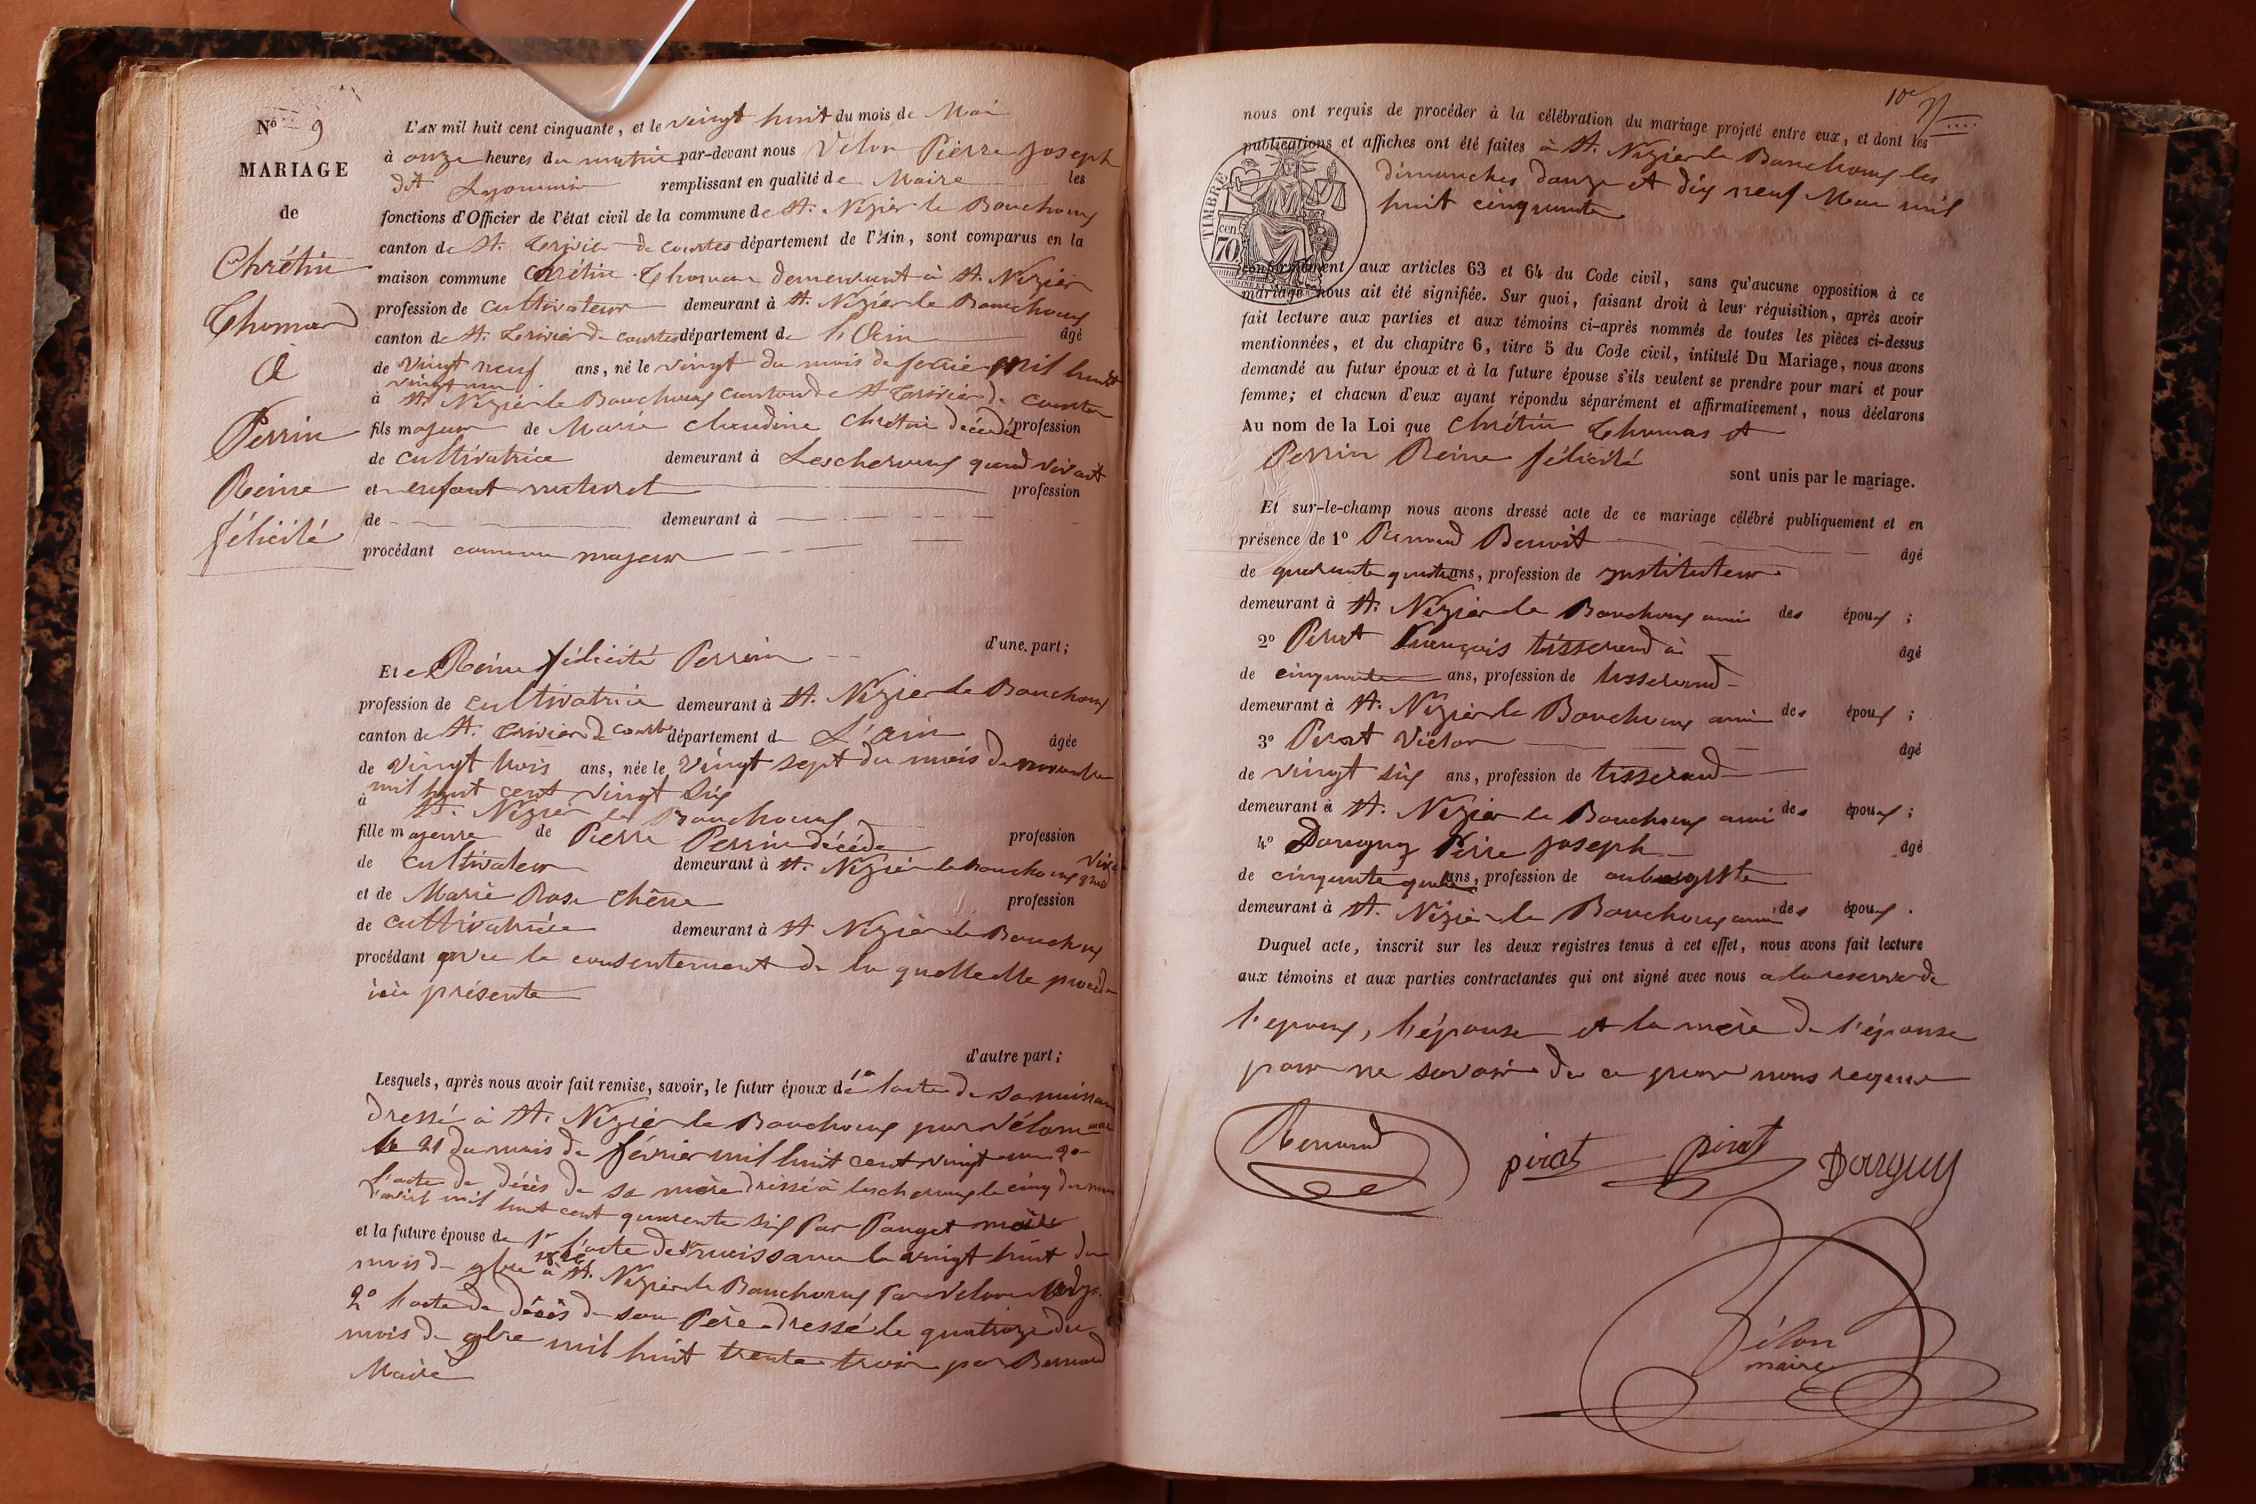 Nº 9
MARIAGE
de
Chrétin
Thomas
à
Perrin
Reine
félicité
L'AN mil huit cent cinquante, et le vingt huit du mois de Mai
à onze heures du matin par-devant nous Vélon Pierre Joseph
dit remplissant en qualité de Maire les
fonctions d'Officier de l'état civil de la commune de St. Nizier le Bouchoux
canton de St. Trivier de courtes département de l'Ain, sont comparus en la
maison commune Chrétin Thomas demeurant à St. Nizier
profession de cultivateur demeurant à St. Nizier le Bouchoux
canton de St. Trivier de courtes département de l'Ain âgé
de vingt neuf ans, né le vingt du mois de février mil huit
vingt un
à St. Nizier le Bouchoux canton de St Trivier de courtes
fils majeur de Marie claudine chrétin décédée profession
de cultivatrice demeurant à Lescheroux quand vivait
et enfant naturel profession
de demeurant à
procédant comme majeur
d'une part;
Et Reine félicité Perrin
profession de cultivatrice demeurant à St. Nizier le Bouchoux
canton de St. Trivier de courtes département de L'ain âgée
de vingt trois ans, née le vingt sept du mois de novembre
mil huit cent vingt six
à St. Nizier le Bouchoux
fille majeure de Pierre Perrin décédé profession
de cultivateur demeurant à St. Nizier le bouchoux
et de Marie Rose chêne profession
de cultivatrice demeurant à St Nizier le Bouchoux
procédant avec le consentement de la quelle elle procède
ici présente
d'autre part;
Lesquels, après nous avoir fait remise, savoir, le futur époux de 1º l'acte de sa naissance
dressé à St. Nizier le Bouchoux par Vélon maire
le 21 du mois de février mil huit cent vingt un 2º
l'acte de décès de sa mère dressé à lescheroux le cinq du mois
d'avril mil huit cent quarante six par Pauget maire
et la future épouse de 1º l'acte de naissance le vingt huit du
mois de 9bre 1826 à St. Nizier le Bouchoux par Vélon adj.
2º l'acte de décès de son Père dressé le quatorze du
mois de 9bre mil huit trente trois par Bernard
Maire
10e
nous ont requis de procéder à la célébration du mariage projeté entre eux, et dont les
publications et affiches ont été faites à St. Nizier le Bouchoux les
dimanches douze et dix neuf Mai mil
huit cinquante
TIMBRE
cen
70
conformément aux articles 63 et 64 du Code civil, sans qu'aucune opposition à ce
mariage nous ait été signifiée. Sur quoi, faisant droit à leur réquisition, après avoir
fait lecture aux parties et aux témoins ci-après nommés de toutes les pièces ci-dessus
mentionnées, et du chapitre 6, titre 5 du Code civil, intitulé Du Mariage, nous avons
demandé au futur époux et à la future épouse s'ils veulent se prendre pour mari et pour
femme; et chacun d'eux ayant répondu séparément et affirmativement, nous déclarons
Au nom de la Loi que chrétin Thomas et
Perrin Reine félicité
sont unis par le mariage.
Et sur-le-champ nous avons dressé acte de ce mariage célébré publiquement et en
présence de 1º Benoit âgé
de quarante quatre ans, profession de instituteur
demeurant à St. Nizier le Bouchoux ami des époux ;
2º Pirat françois tisserand à âgé
de cinquante ans, profession de tisserand
demeurant à St. Nizier le Bouchoux ami des époux ;
3º Pirat Victor âgé
de vingt six ans, profession de tisserand
demeurant à St. Nizier le Bouchoux ami des époux ;
4º Douguy Pierre Joseph âgé
de cinquante quatre ans, profession de aubergiste
demeurant à St. Nizier le Bouchoux ami des époux .
Duquel acte, inscrit sur les deux registres tenus à cet effet, nous avons fait lecture
aux témoins et aux parties contractantes qui ont signé avec nous a la reserve de
l'epoux, l'épouse et la mère de l'épouse
pour ne savoir de ce par nous requis
pirat pirat Douguy
Vélon
maire